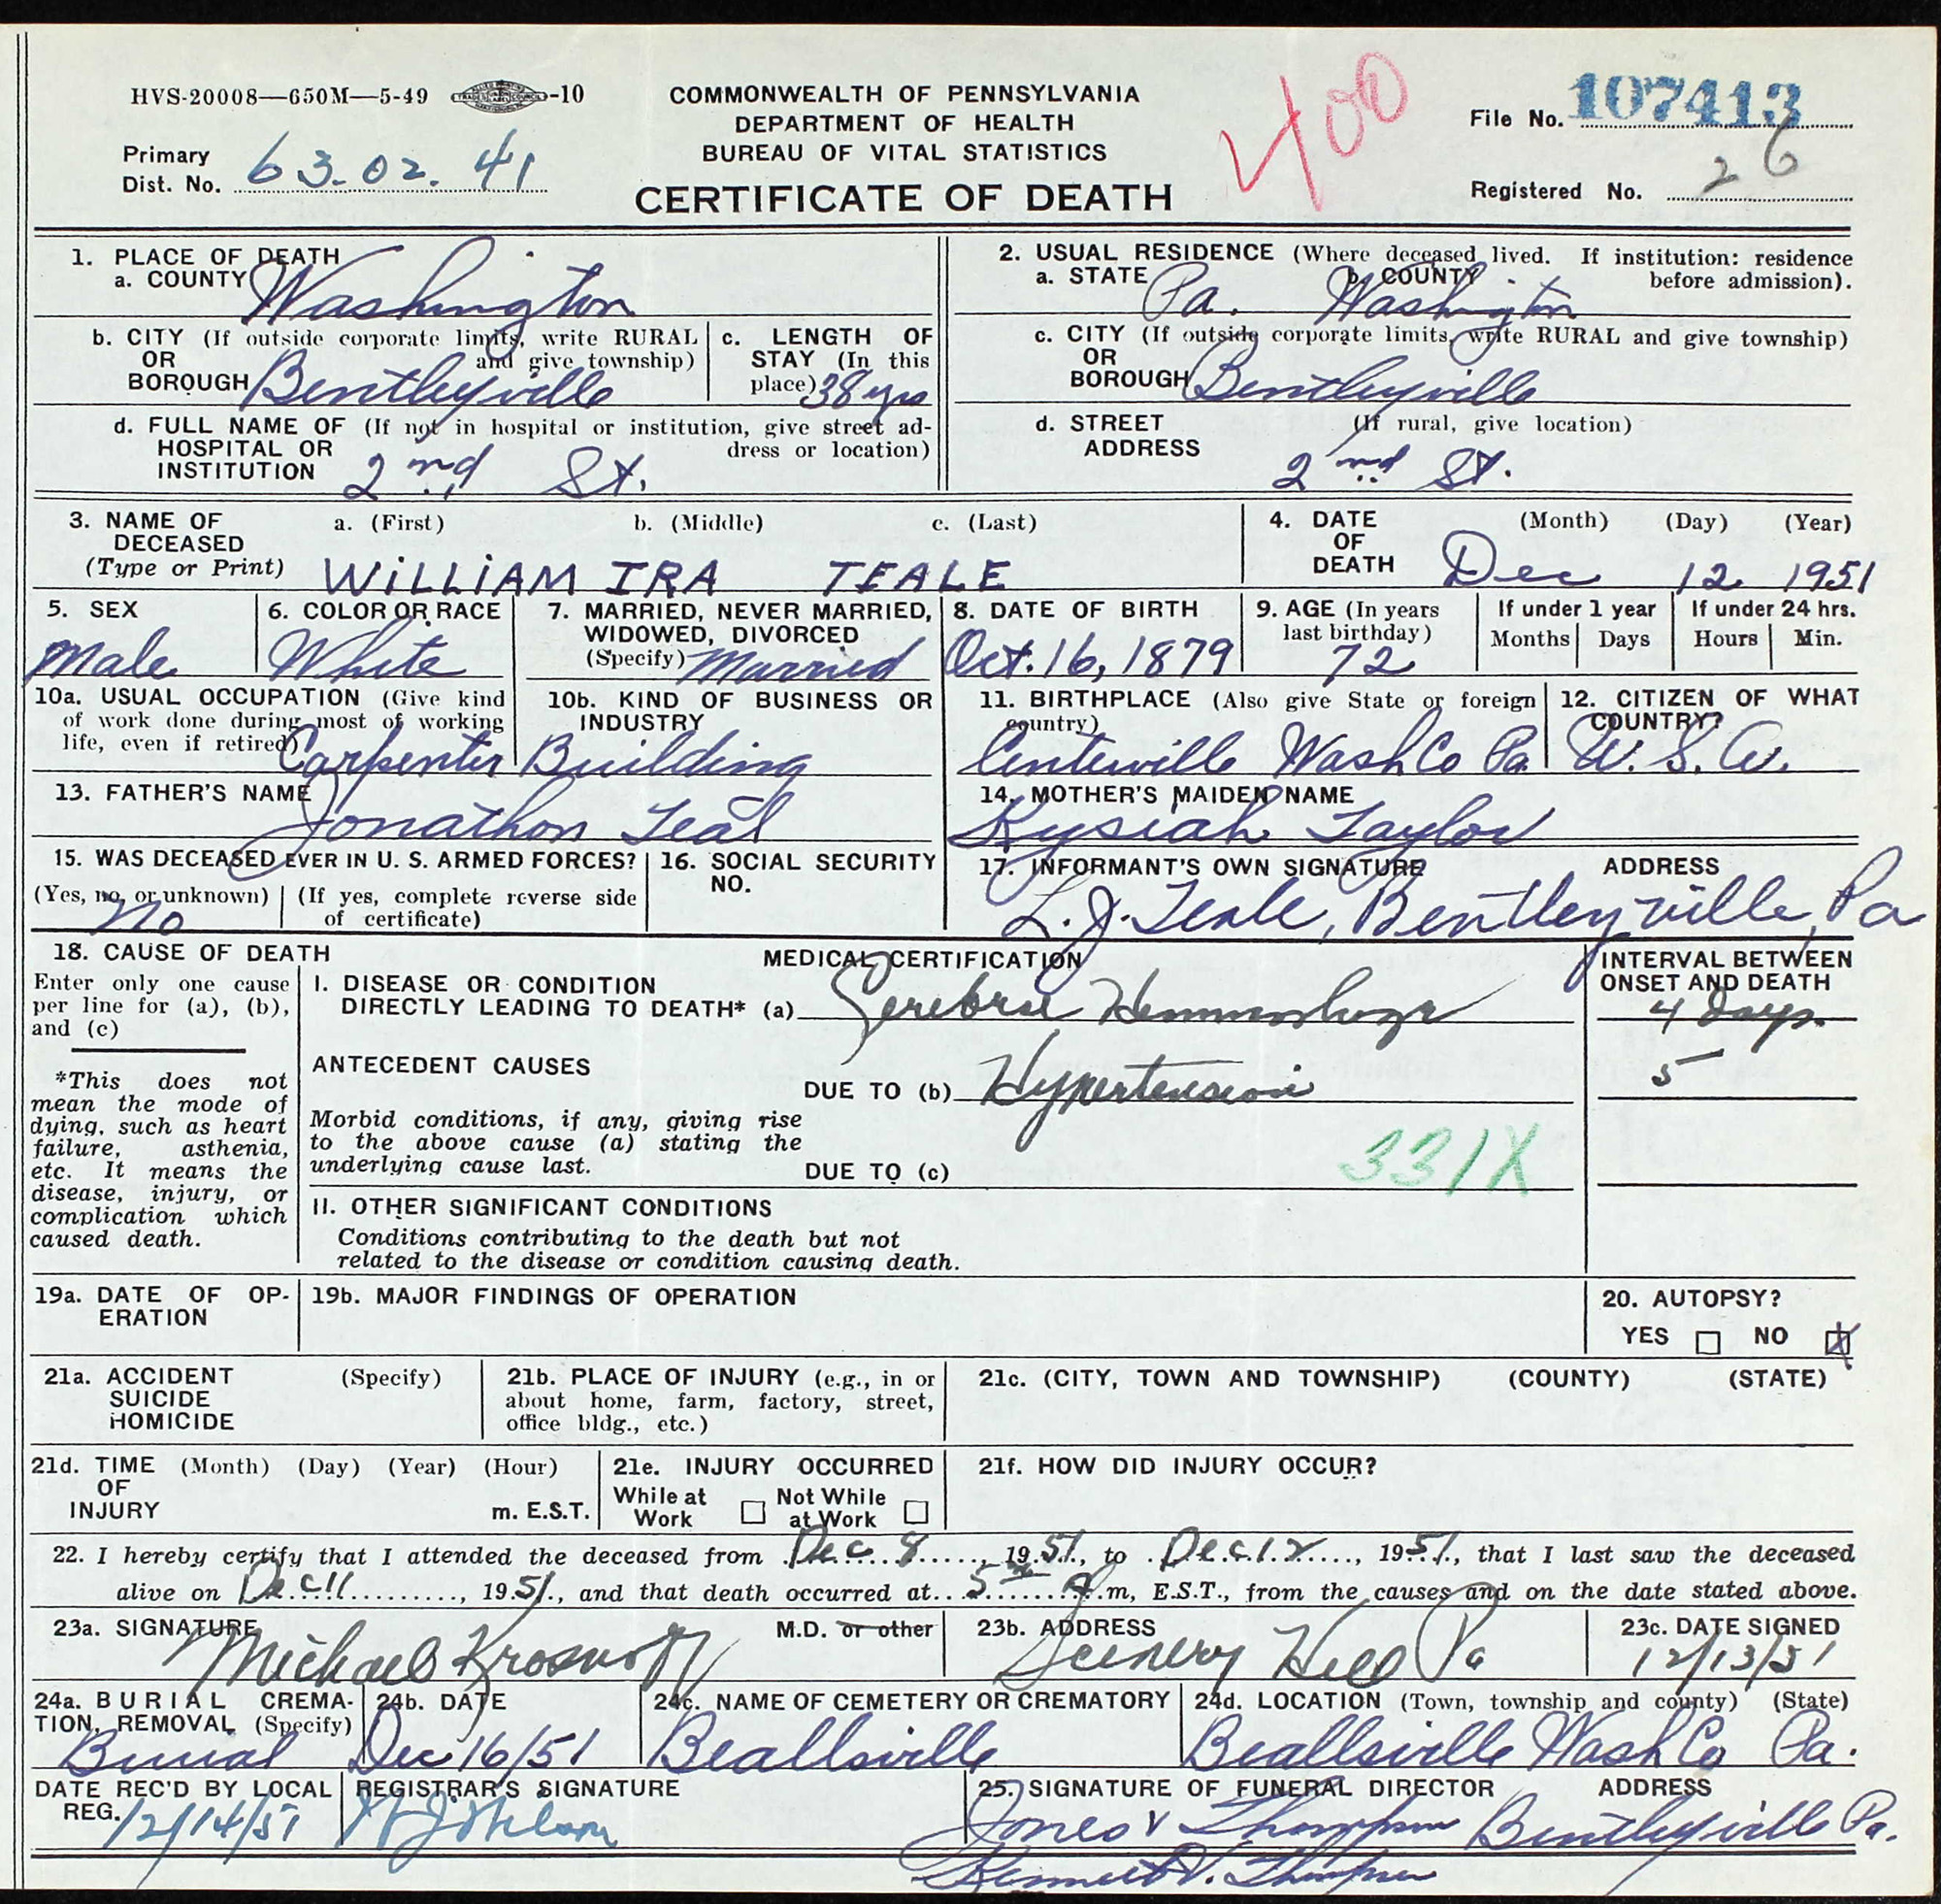 HVS-20008—650M—5-49 -10
COMMONWEALTH OF PENNSYLVANIA
DEPARTMENT OF HEALTH
BUREAU OF VITAL STATISTICS
CERTIFICATE OF DEATH
400
File No. 107413
Primary
Dist. No. 63-02-41
Registered No. 26
1. PLACE OF DEATH
a. COUNTY Washington
b. CITY (If outside corporate limits, write RURAL
OR and give township)
BOROUGH Bentleyville
c. LENGTH OF
STAY (In this
place) 38 yrs
d. FULL NAME OF (If not in hospital or institution, give street ad-
HOSPITAL OR dress or location)
INSTITUTION 2nd St.
2. USUAL RESIDENCE (Where deceased lived. If institution: residence
before admission).
a. STATE Pa. b. COUNTY Washington
c. CITY (If outside corporate limits, write RURAL and give township)
OR
BOROUGH Bentleyville
d. STREET (If rural, give location)
ADDRESS 2nd St.
3. NAME OF a. (First) b. (Middle) c. (Last)
DECEASED
(Type or Print) WiLLiAM IRA TEALE
4. DATE (Month) (Day) (Year)
OF
DEATH Dec 12 1951
5. SEX
Male
6. COLOR OR RACE
White
7. MARRIED, NEVER MARRIED,
WIDOWED, DIVORCED
(Specify) Married
8. DATE OF BIRTH
Oct. 16, 1879
9. AGE (In years
last birthday)
72
If under 1 year
Months Days
If under 24 hrs.
Hours Min.
10a. USUAL OCCUPATION (Give kind
of work done during most of working
life, even if retired)
Carpenter
10b. KIND OF BUSINESS OR
INDUSTRY
Building
11. BIRTHPLACE (Also give State or foreign
country)
Centerville Wash Co Pa.
12. CITIZEN OF WHAT
COUNTRY?
U. S. A.
13. FATHER'S NAME
Jonathon Teal
14. MOTHER'S MAIDEN NAME
Kysiah Taylor
15. WAS DECEASED EVER IN U. S. ARMED FORCES?
(Yes, no, or unknown) (If yes, complete reverse side
of certificate)
No
16. SOCIAL SECURITY
NO.
17. INFORMANT'S OWN SIGNATURE ADDRESS
L. J. Teale, Bentleyville, Pa
18. CAUSE OF DEATH
Enter only one cause
per line for (a), (b),
and (c)
*This does not
mean the mode of
dying, such as heart
failure, asthenia,
etc. It means the
disease, injury, or
complication which
caused death.
MEDICAL CERTIFICATION
I. DISEASE OR CONDITION
DIRECTLY LEADING TO DEATH* (a) Hemmorhage
ANTECEDENT CAUSES
DUE TO (b) Hypertension
Morbid conditions, if any, giving rise
to the above cause (a) stating the
underlying cause last.
DUE TO (c)
331X
II. OTHER SIGNIFICANT CONDITIONS
Conditions contributing to the death but not
related to the disease or condition causing death.
INTERVAL BETWEEN
ONSET AND DEATH
4 Days
5
19a. DATE OF OP-
ERATION
19b. MAJOR FINDINGS OF OPERATION
20. AUTOPSY?
YES NO X
21a. ACCIDENT (Specify)
SUICIDE
HOMICIDE
21b. PLACE OF INJURY (e.g., in or
about home, farm, factory, street,
office bldg., etc.)
21c. (CITY, TOWN AND TOWNSHIP) (COUNTY) (STATE)
21d. TIME (Month) (Day) (Year) (Hour)
OF
INJURY m. E.S.T.
21e. INJURY OCCURRED
While at Not While
Work at Work
21f. HOW DID INJURY OCCUR?
22. I hereby certify that I attended the deceased from Dec 8, 1951, to Dec. 12, 1951, that I last saw the deceased
alive on Dec 11, 1951, and that death occurred at 5 A m, E.S.T., from the causes and on the date stated above.
23a. SIGNATURE M.D. or other
Michael Krosnoff
23b. ADDRESS
Scenery Hill Pa
23c. DATE SIGNED
12/13/51
24a. BURIAL CREMA-
TION, REMOVAL (Specify)
Burial
24b. DATE
Dec 16/51
24c. NAME OF CEMETERY OR CREMATORY
Beallsville
24d. LOCATION (Town, township and county) (State)
Beallsville Wash Co Pa.
DATE REC'D BY LOCAL
REG. 12/14/51
REGISTRAR'S SIGNATURE
25. SIGNATURE OF FUNERAL DIRECTOR ADDRESS
Jones & Thompson Bentleyville Pa.
Kenneth V. Thompson